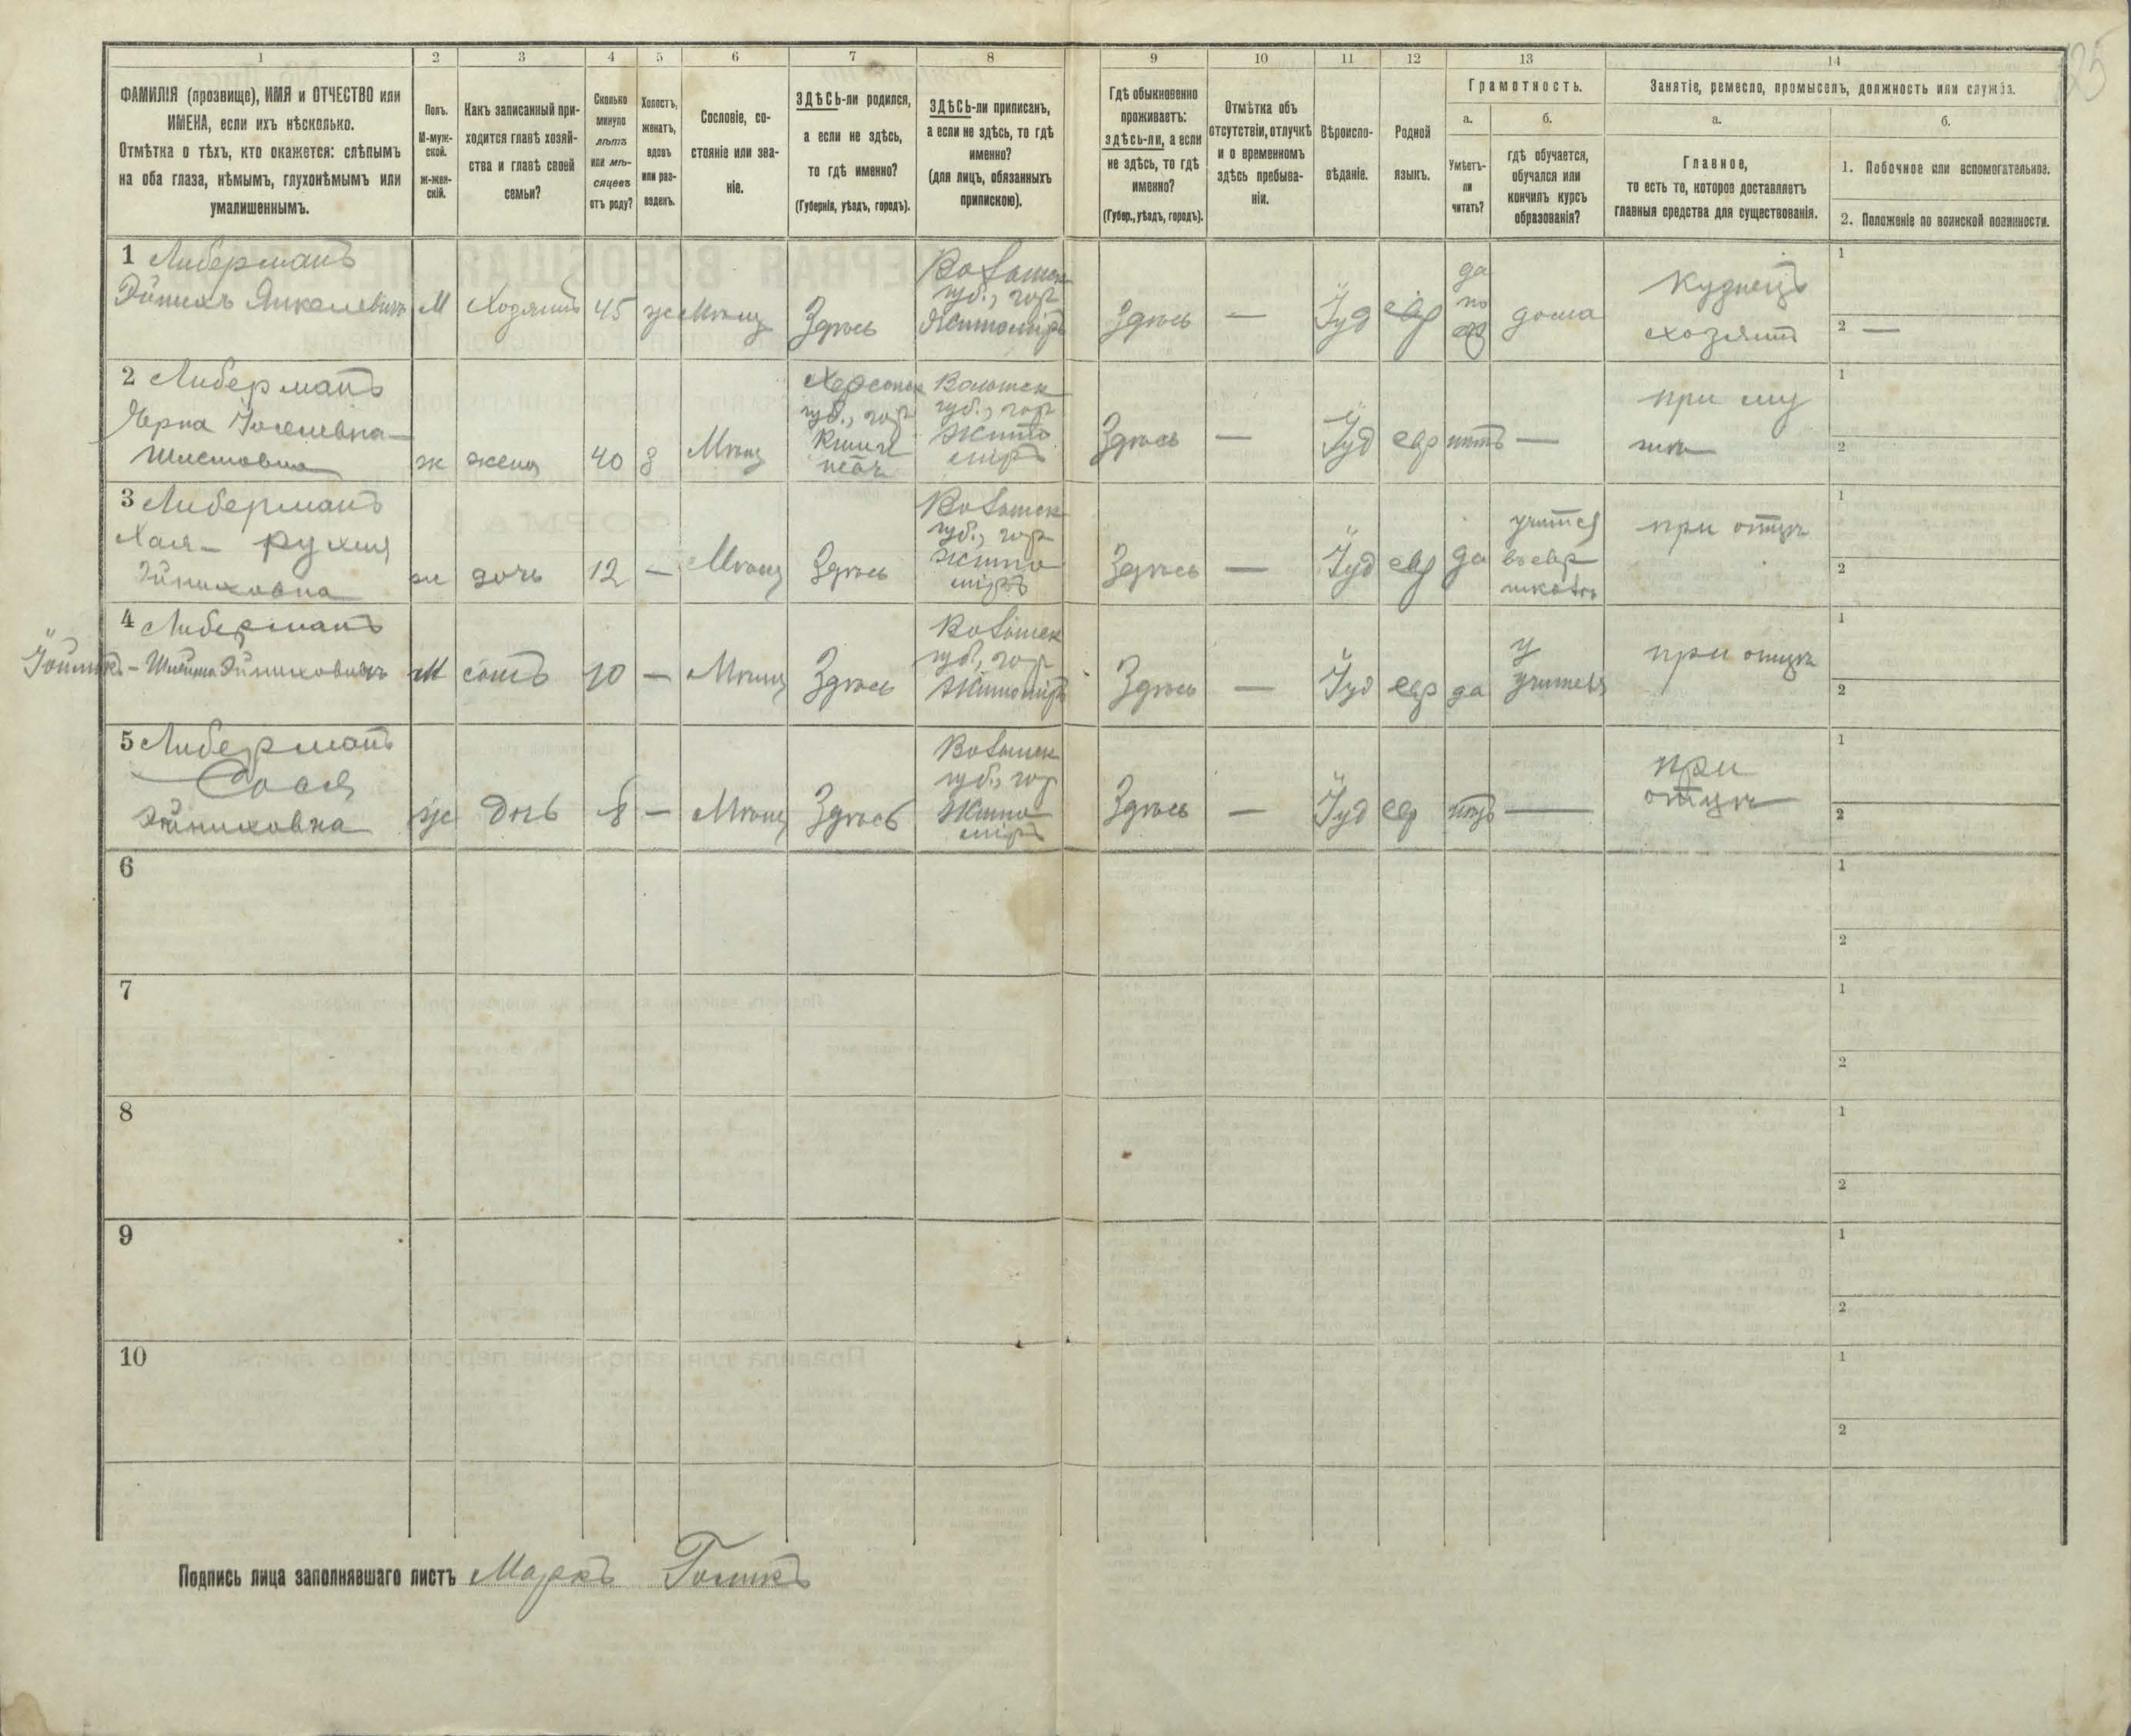 125
1 2 3 4 5 6 7 8 9 10 11 12 13 14
ФАМИЛІЯ (прозвище), ИМЯ и ОТЧЕСТВО или
ИМЕНА, если ихъ нѣсколько.
Отмѣтка о тѣхъ, кто окажется: слѣпымъ
на оба глаза, нѣмымъ, глухонѣмымъ или
умалишеннымъ.
Полъ.
М-муж-
ской.
Ж-жен-
скій.
Какъ записанный при-
ходится главѣ хозяй-
ства и главѣ своей
семьи?
Сколько
минуло
лѣтъ
или мѣ-
сяцевъ
отъ роду?
Холостъ,
женатъ,
вдовъ
или раз-
веденъ.
Сословіе, со-
стояніе или зва-
ніе.
ЗДѢСЬ-ли родился,
а если не здѣсь,
то гдѣ именно?
(Губернія, уѣздъ, городъ).
ЗДѢСЬ-ли приписанъ,
а если не здѣсь, то гдѣ
именно?
(для лицъ, обязанныхъ
припискою).
Гдѣ обыкновенно
проживаетъ:
здѣсь-ли, а если
не здѣсь, то гдѣ
именно?
(Губер., уѣздъ, городъ).
Отмѣтка объ
отсутствіи, отлучкѣ
и о временномъ
здѣсь пребыва-
ніи.
Вѣроиспо-
вѣданіе.
Родной
языкъ.
Грамотность.
а.
Умѣетъ-
ли
читать?
б.
гдѣ обучается,
обучался или
кончилъ курсъ
образованія?
Занятіе, ремесло, промыселъ, должность или служба.
а.
Главное,
то есть то, которое доставляетъ
главныя средства для существованія.
б.
1. Побочное или вспомогательное.
2. Положеніе по воинской повинности.
1 Либерманъ
Эйнихъ Янкелевичъ
М
Хозяинъ
45
ж
Мѣщ
Здѣсь
Волынск
губ., гор
Житоміръ
Здѣсь
—
Іуд
евр
да
по
евр
дома
Кузнецъ
хозяинъ
1
2 —
2 Либерманъ
Іоселевна
ж
жена
40
з
Мѣщ
Херсонск
губ., гор
Волынск
губ., гор
Жито
міръ
Здѣсь
—
Іуд
евр
нѣтъ
—
при му
жѣ
1
2
3 Либерманъ
Хая- Рухля
Эйниховна
ж
дочь
12
—
Мѣщ
Здѣсь
Волынск
губ., гор
Жито
міръ
Здѣсь
—
Іуд
евр
да
учится
въ евр
школѣ
при отцѣ
1
2
4 Либерманъ
Эйниховичъ
М
сынъ
10
—
Мѣщ
Здѣсь
Волынск
губ., гор
Житоміръ
Здѣсь
—
Іуд
евр
да
у
учителя
при отцѣ
1
2
5 Либерманъ
Сося
Эйниховна
ж
дочь
8
—
Мѣщ
Здѣсь
Волынск
губ., гор
Жито
міръ
Здѣсь
—
Іуд
евр
нѣтъ
—
при
отцѣ
1
2
6
1
2
7
1
2
8
1
2
9
1
2
10
1
2
Подпись лица заполнявшаго листъ Маркъ